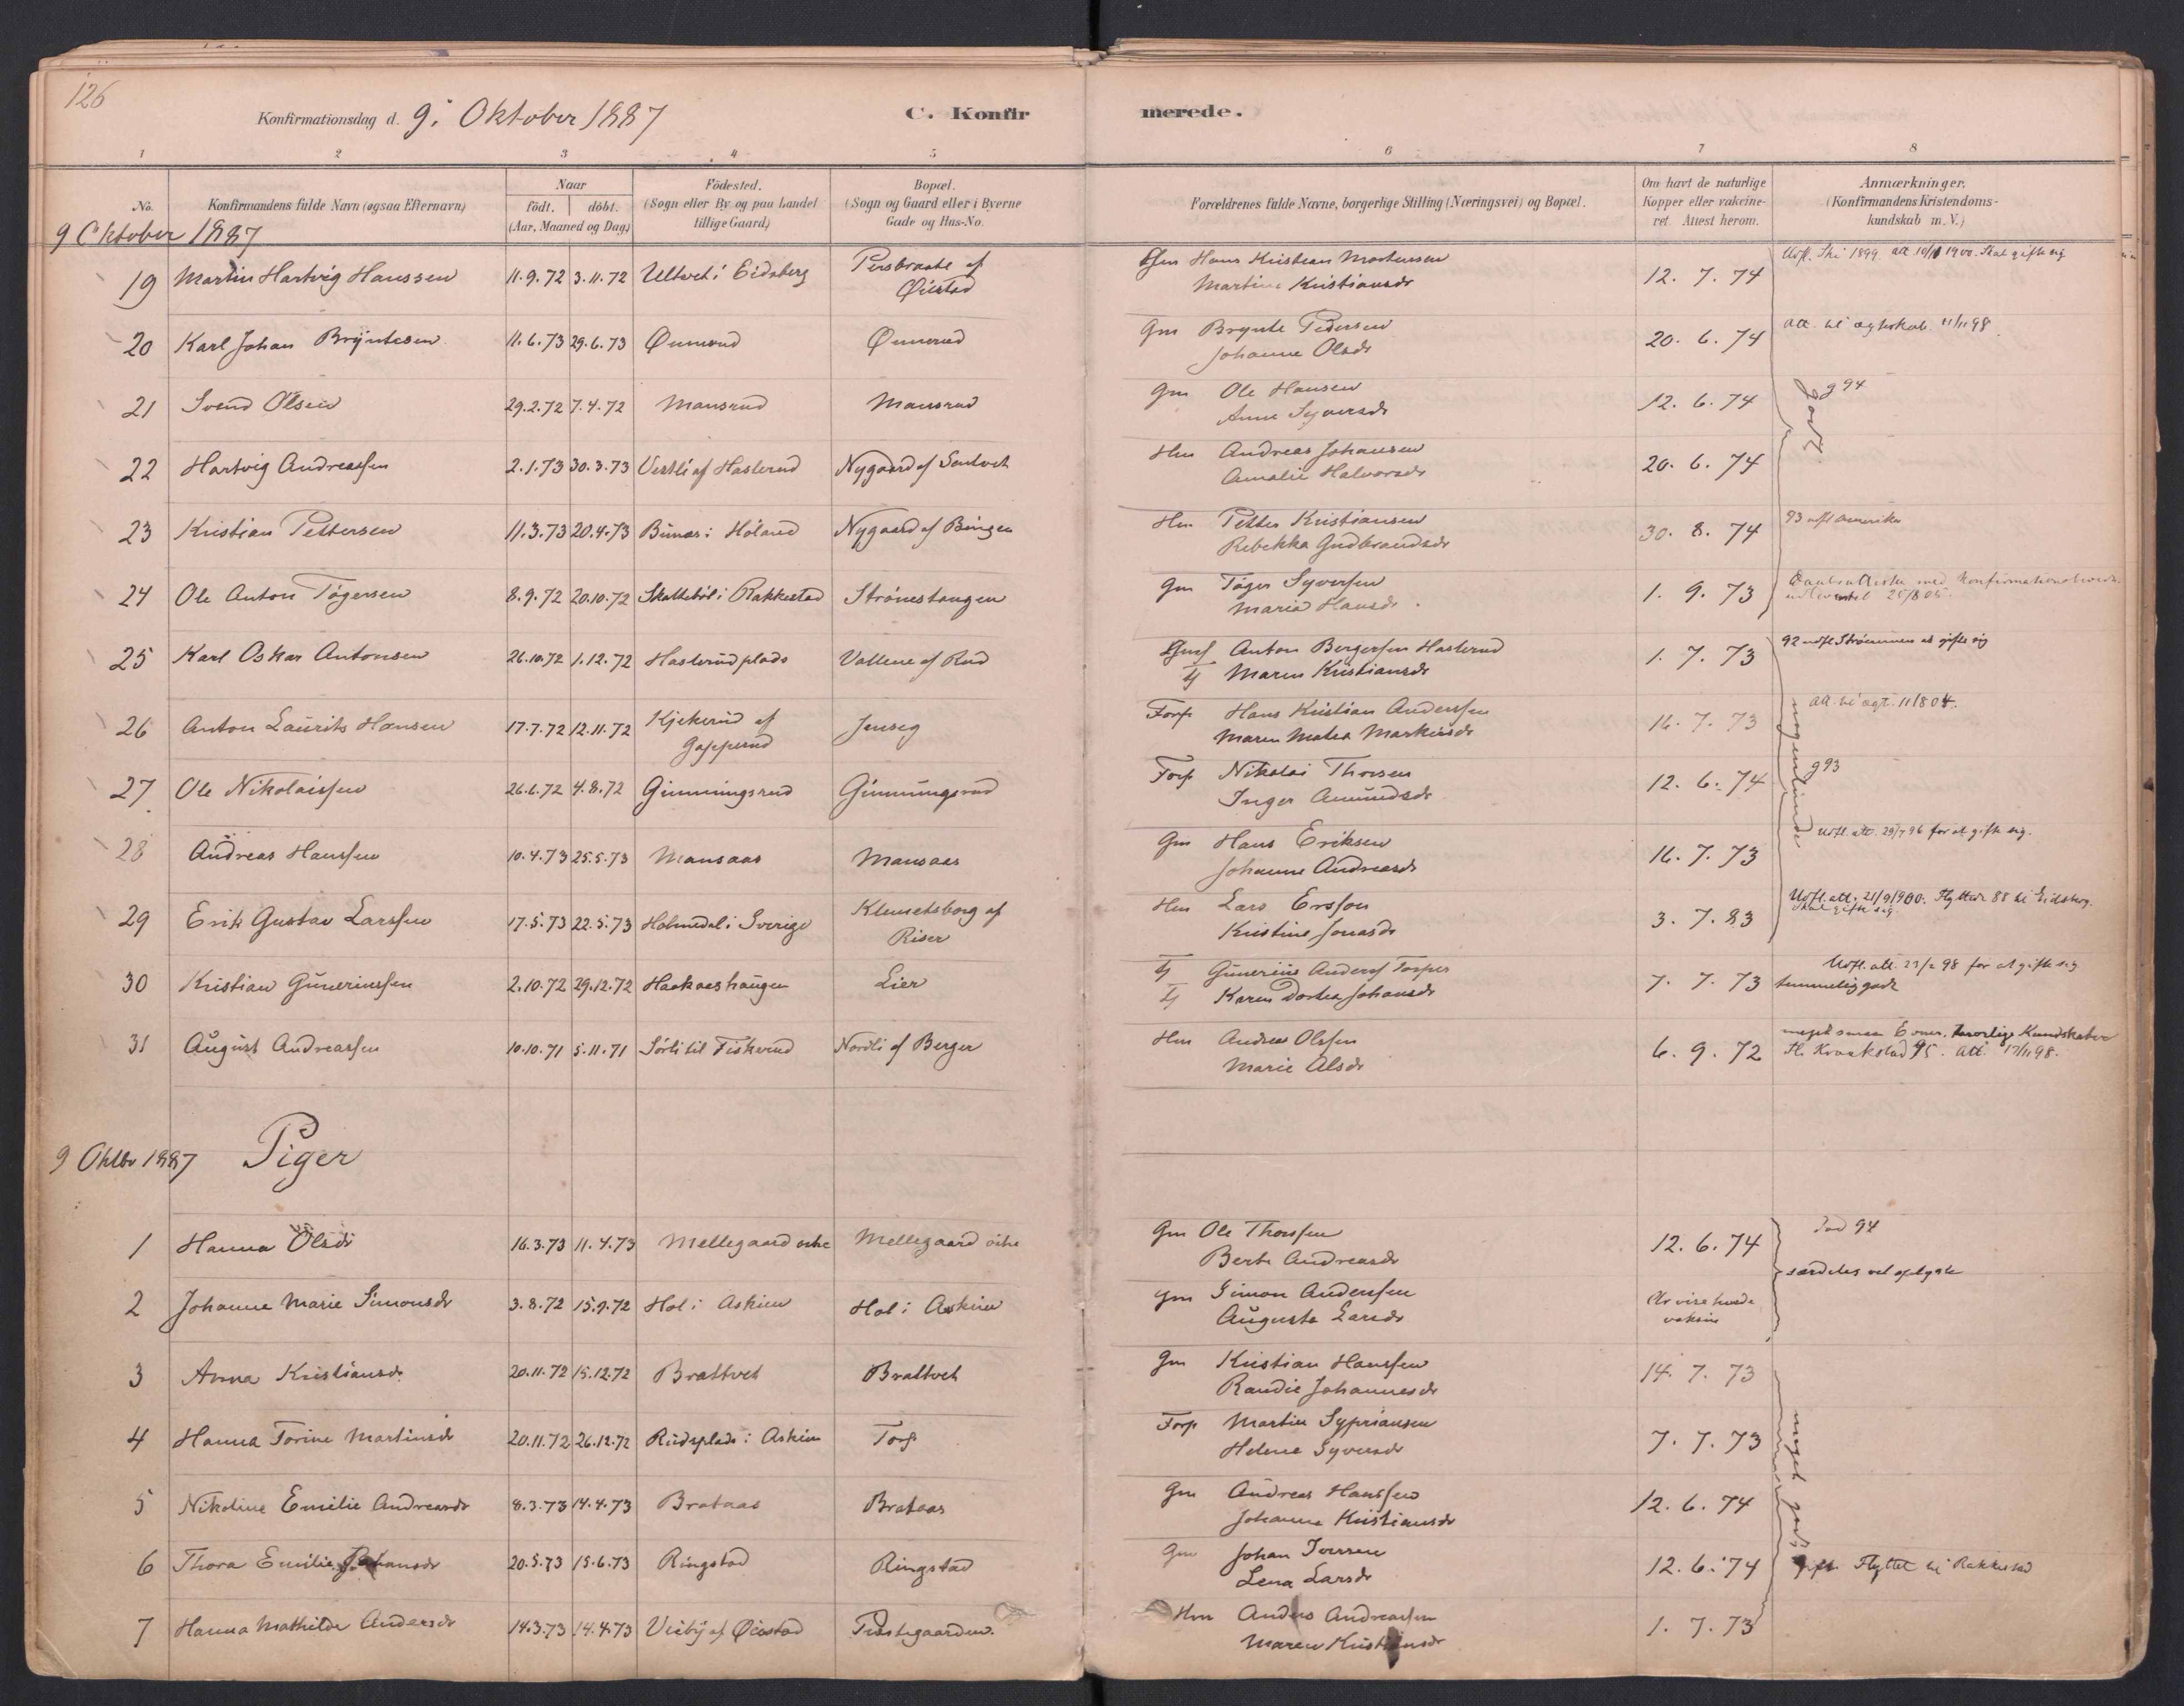 126
Konfirmationsdag d. 9. Oktober 1887
C. Konfirmerede.
1 2 3 4 5 6 7 8
No.
Konfirmandens fulde Navn (ogsaa Efternavn)
Naar
født. døbt.
(Aar, Maaned og Dag)
Födested.
(Sogn eller By og paa Landet
tillige Gaard)
Bopæl.
(Sogn og Gaard eller i Byerne
Gade og Hus-No.
Forældrenes fulde Navne, borgerlige Stilling (Næringsvei) og Bopæl.
Om havt de naturlige
Kopper eller vakcine-
ret Attest herom.
Anmærkninger.
(Konfirmandens Kristendoms-
kundskab m. V.)
9 Oktober 1887
19 Martin Hartvig Hanssen 11.9.72 3.11.72 Ultvet i Eidsberg Persbraate af Øiestad Gm Hans Kristian Mortensen 12. 7. 74 Udfl. Ski 1899. att 1900. Skal gifte sig
Martine Kristiansdr
20 Karl Johan Bryntesen 11.6.73 29.6.73 Ønnerud Ønnerud Gm Brynte Pedersen 20. 6. 74 att. til ægteskab. 11/11 98
Johanne Olsdr
21 Svend Olsen 29.2.72 7.4.72 Mansrud Mansrud Gm Ole Hansen 12. 6. 74 g 94
Anne Syversdr
godt
22 Hartvig Andreassen 2.1.73 30.3.73 Vestli af Haslerud Nygaard af Sentvet Hm Andreas Johansen 20. 6. 74
Amalie Halvorsdr
23 Kristian Pettersen 11.3.73 20.4.73 i Höland Nygaard af Bingen Hm Petter Kristiansen 30. 8. 74 93 udfl Amerika
Rebekka Gudbrandsdr
24 Ole Anton Tögersen 8.9.72 20.10.72 Skattebøl i Rakkestad Strönestangen Gm Töger Syversen 1. 9. 73 Daabsattest med Konfirmationsbevis
Maria Hansdr
25/8 05.
25 Karl Oskar Antonsen 26.10.72 1.12.72 Haslerudplads Vollene af Rud Gmf Anton Bergersen Haslerud 1. 7. 73 92 udfl Strømmen at gifte sig
Tj Maren Kristiansdr
26 Anton Laurits Hansen 17.7.72 12.11.72 Kjekerud af Gapperud Jenseg Forp Hans Kristian Anderssen 16. 7. 73 att. til ægt. 11/8 04.
Maren Mathea Markusdr
nogenlunde
27 Ole Nikolaissen 26.6.72 4.8.72 Gunningsrud Gunningsrud Forp Nikolai Thorsen 12. 6. 74 g 93
Inger Amundsdr
28 Andreas Hanssen 10.4.73 25.5.73 Mansaas Mansaas Gm Hans Eriksen 16. 7. 73 Udfl. att. 29/7 96 for at gifte sig.
Johanne Andreasdr
29 Erik Gustav Larssen 17.5.73 22.5.73 Holmedal i Sverige Klemetsborg af Riser Hm Lars Ersson 3. 7. 83 Udfl. att. 21/9 1900. Flyttede 88 til Eidsberg.
Kristine Jonasdr
Skal gifte sig
30 Kristian Gunerinssen 2.10.72 29.12.72 Haakaashaugen Lier Tj Gunerius Anderss Torper 7. 7. 73 Udfl. att. 98 for at gifte sig
Tj Karen Dorthea Johansdr
temmelig godt
31 August Andreassen 10.10.71 5.11.71 Sörli til Fiskerud Nordli af Berger Hm Andreas Olssen 6. 9. 72 meget smaa Evner. Kundskaber
Marie Olsdr
Fl. Kraakstad 95. att. 17/11 98.
9 Oktbr 1887 Piger
1 Hanna Olsdr 16.3.73 11.4.73 Mellegaard östre Mellegaard östre Gm Ole Thorssen 12. 6. 74 död 94
Berte Andreasdr
særdeles vel oplyste
2 Johanne Marie Simonsdr 3.8.72 15.9.72 Hol i Askim Hol i Askim Gm Simon Anderssen
Augusta Larsdr
3 Anna Kristiansdr 20.11.72 15.12.72 Brattvet Brattvet Gm Kristian Hanssen 14. 7. 73
Randie Johannesdr
4 Hanna Torine Martinsdr 20.11.72 26.12.72 Rudsplads i Askim Torp Forp Martin Syprianssen 7. 7. 73
Helene Syversdr
meget godt
5 Nikoline Emilie Andreasdr 8.3.73 14.4.73 Brataas Brataas Gm Andreas Hanssen 12. 6. 74
Johanne Kristiansdr
6 Thora Emilie Johansdr 20.5.73 15.6.73 Ringstad Ringstad Gm Johan Iversen 12. 6. 74 gift Flyttet til Rakkestad
Lena Larsdr
7 Hanna Mathilde Andersdr 14.3.73 14.4.73 Vieby af Øiestad Præstegaarden. Hm Anders Andreassen 1. 7. 73
Maren Kristiansdr